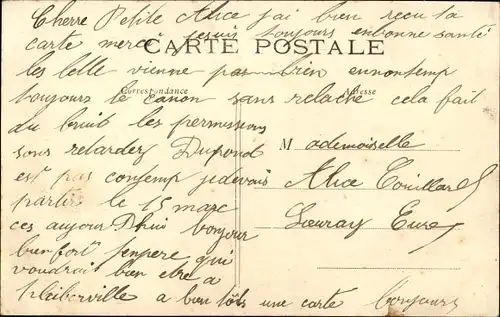 Cherre Petite Alice jai bien recu ta
carte merci jesuis toujours enbonne santé
CARTE POSTALE
les lelle vienne pas bien ennontemp
Correspondance
Adresse
toujours le canon sans relache cela fait
du bruit les permissions
sons retardez Dupond
est pas contemp jedevais
partir le 15 mars
ces aujour Dhui bonjour
bienfort jenpere qui
voudrait bien etre a
a bon tôts une carte Bonjours
Mademoiselle
Alice Touillard
Louray Eure